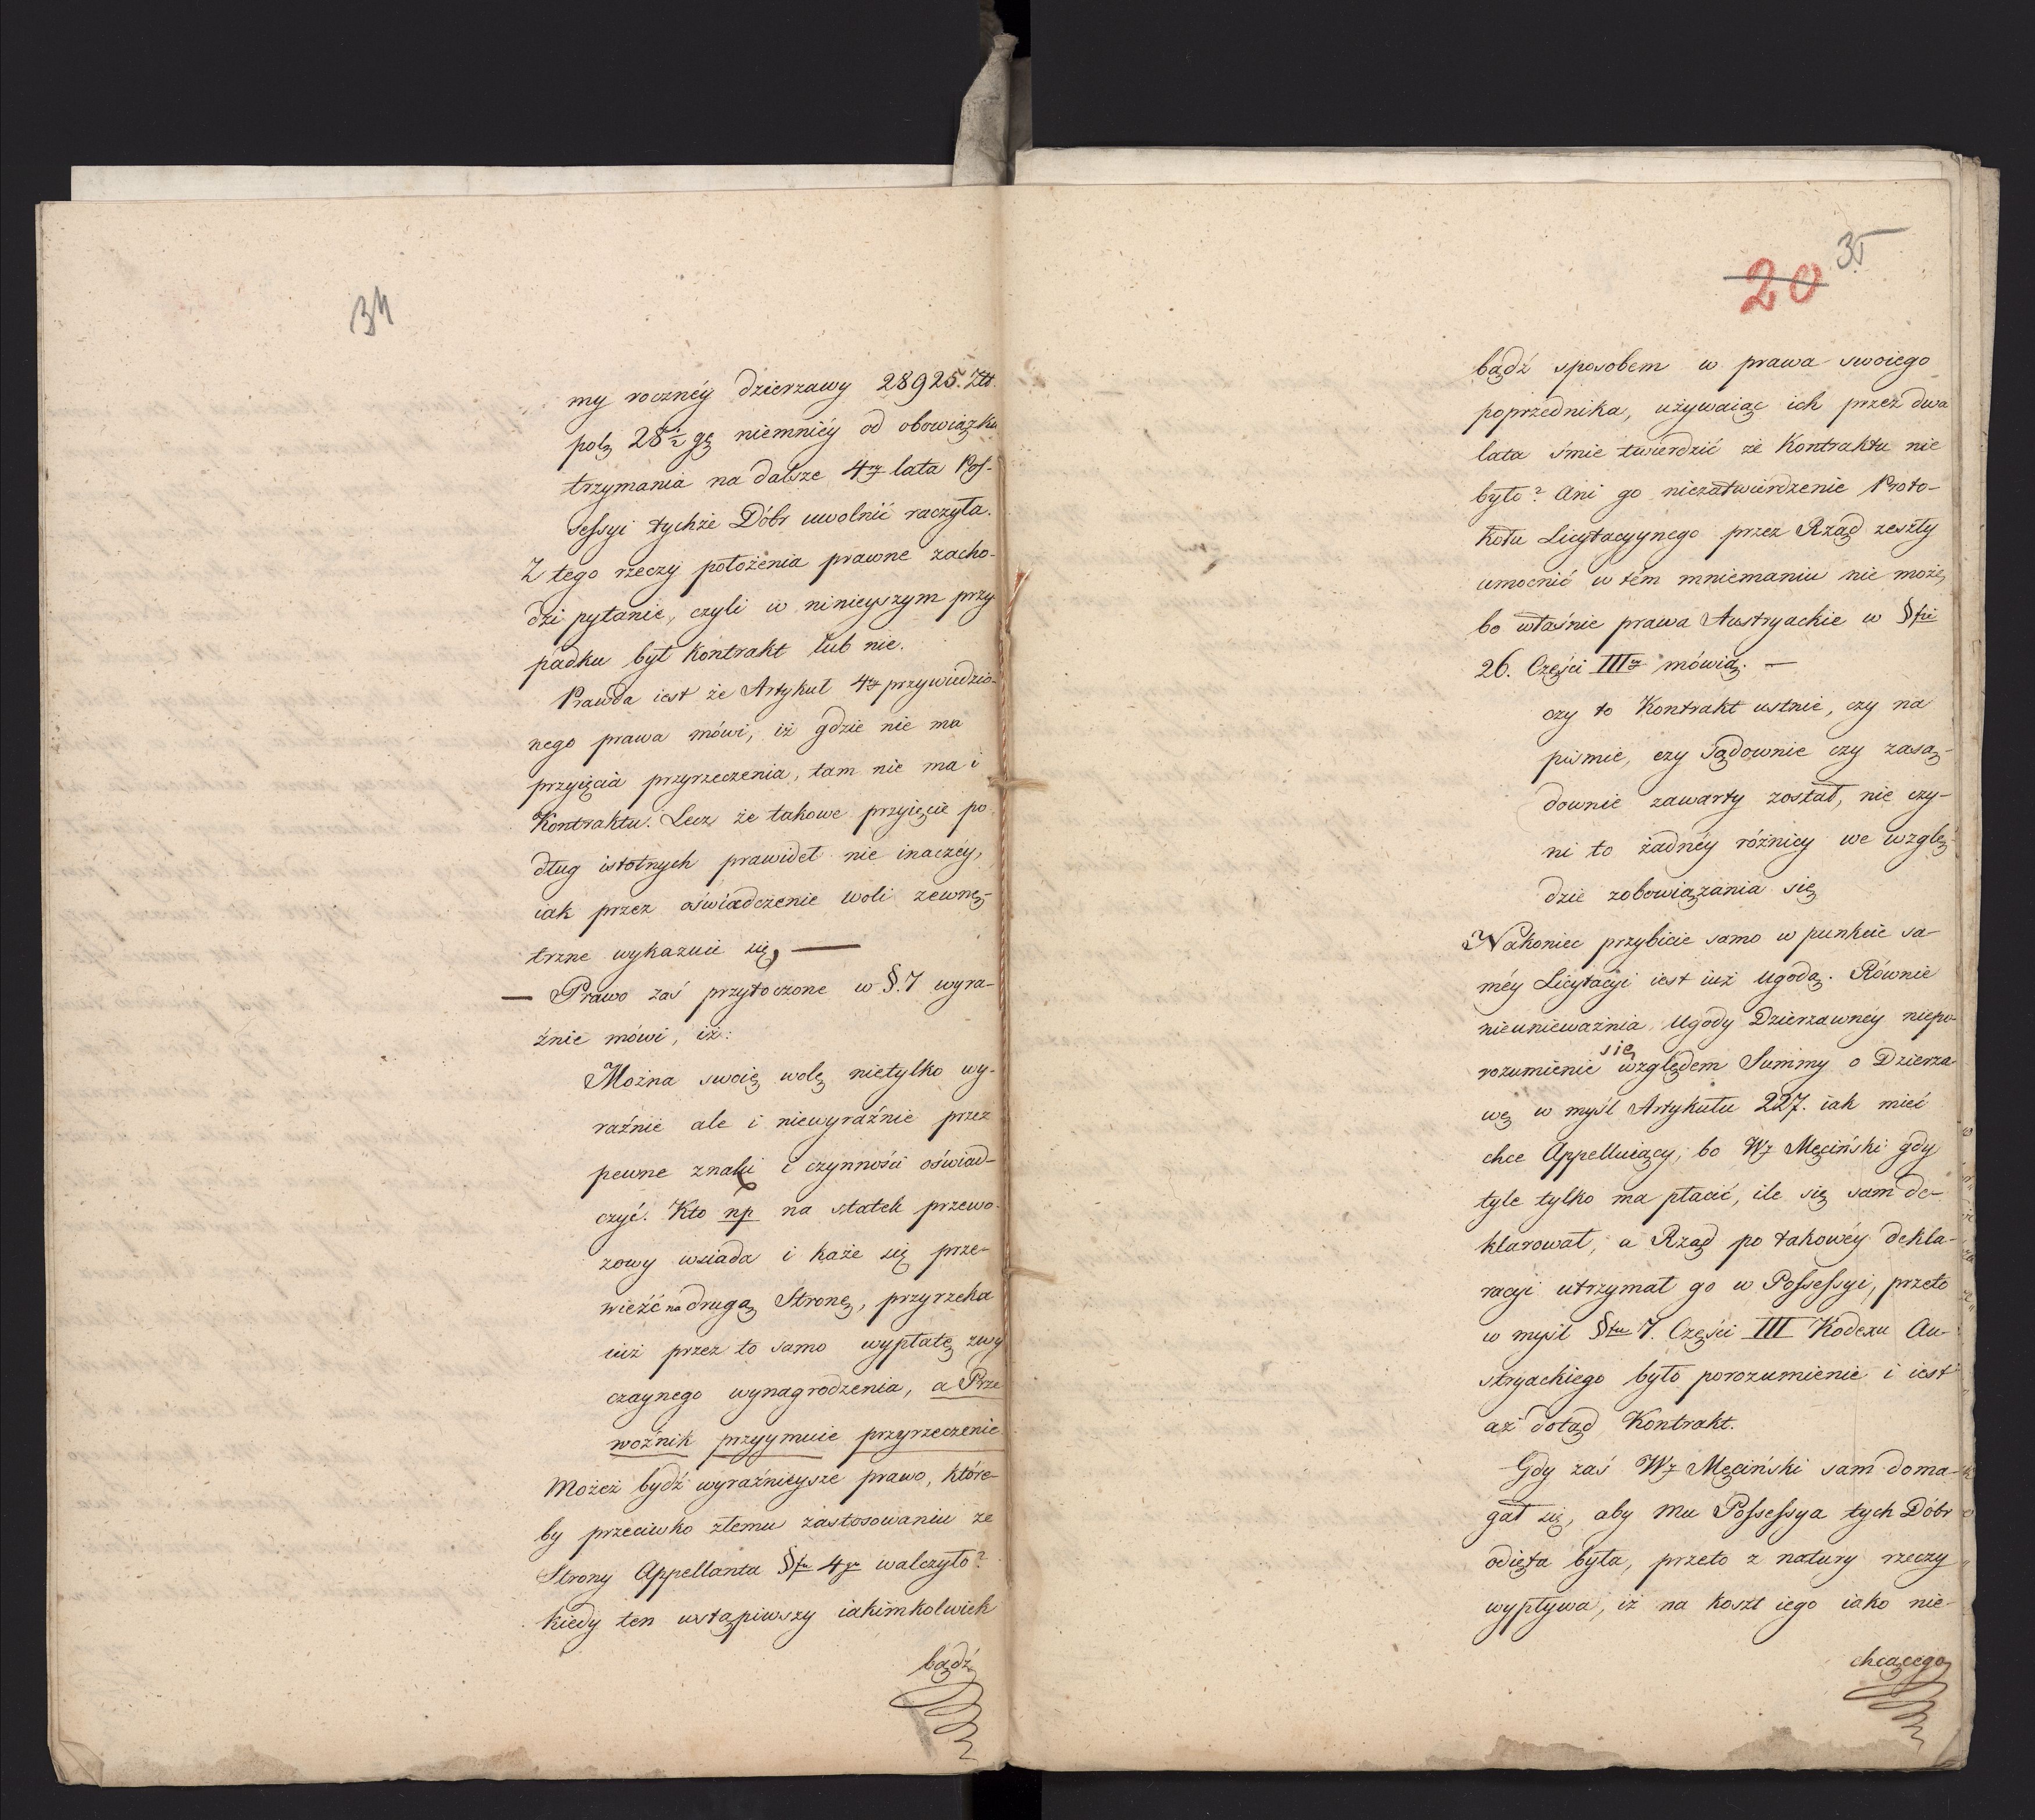 34
my rocznéy dzierzawy 28925. Złt.
pols 28½ gs niemniéy od obowiązku
trzymania na dalsze 4ry lata Pos-
sessyi tychże Dóbr uwolnić raczyła.
Z tego rzeczy położenia prawne zacho-
dzi pytanie, czyli w ninieyszym przy
padku był Kontrakt lub nie.
Prawda iest że Artykuł 4ty przywiedzio-
nego prawa mówi, iż gdzie nie ma
przyięcia przyrzeczenia, tam nie ma i
Kontraktu. Lecz że takowe przyięcie po
dług istotnych prawideł nie inaczey,
iak przez oświadczenie woli zewnę-
trzne wykazuie się, —
— Prawo zaś przytoczone w §. 7 wyra-
źnie mówi, iż:
Można swoię wolę nietylko wy-
raźnie ale i niewyraźnie przez
pewne znaki i czynności oświad-
czyć. Kto np na statek przewo-
zowy wsiada i każe się prze-
wieźć na drugą Stronę, przyrzeka
iuż przez to samo wypłatę zwy
czaynego wynagrodzenia, a Prze
woźnik przyymuie przyrzeczenie
Możeż bydź wyraźnieysze prawo, które-
by przeciwko złemu zastosowaniu ze
Strony Appellanta §fu 4go walczyło?
kiedy ten wstąpiwszy iakimkolwiek
bądź
20 35
bądź sposobem w prawa swoiego
poprzednika, używaiąc ich przez dwa
lata śmie twierdzić że Kontraktu nie
było? Ani go niezatwierdzenie Proto-
kołu Licytacyynego przez Rząd zeszły
umocnić w tém mniemaniu nie może,
bo właśnie prawa Austryackie w §fie
26. Części IIIey mówią. —
czy to Kontrakt ustnie, czy na
piśmie, czy Sądownie czy zasą-
downie zawarty został, nie czy-
ni to żadnéy różnicy we wzglę
dzie zobowiązania się
Nakoniec przybicie samo w punkcie sa-
méy Licytacyi iest iuż ugodą. Równie
nieunieważnia Ugody Dzierzawnéy niepo-
rozumienie się względem Summy o Dzierza-
wę w myśl Artykułu 227. iak mieć
chce Appelluiący, bo Wy Męciński gdy
tyle tylko ma płacić, ile się sam de-
klarował, a Rząd po takowéy dekla-
racyi utrzymał go w Possessyi, przeto
w myśl §fu 7. Części III Kodexu Au-
stryackiego było porozumienie i iest
aż dotąd Kontrakt.
Gdy zaś Wy Męciński sam doma-
gał się, aby mu Possessya tych Dóbr
odięta była, przeto z natury rzeczy
wypływa, iż na koszt iego iako nie-
chcącego